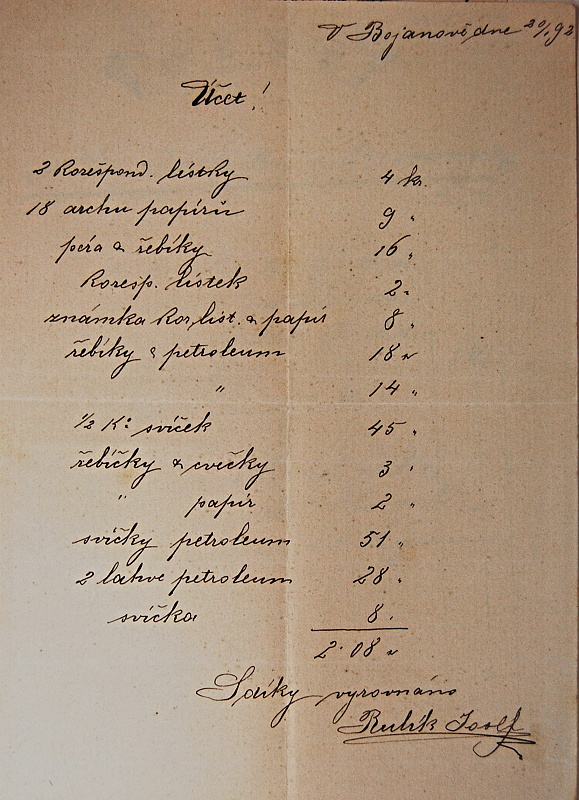 V Bojanově dne 20/1 92
Účet!
2 Korešpond. lístky 4 kr.
18 archu papírů 9 "
péra & řebíky 16 "
Koresp. lístek 2 "
známka Kor. list. & papír 8 "
řebíky & petroleum 18 "
" 14 "
1/2 Ko svíček 45 "
řebíčky & cvečky 3 "
" papír 2 "
svíčky petroleum 51 "
2 lahve petroleum 28 "
svíčka 8 "
2·08 "
S díky vyrovnáno
Josef